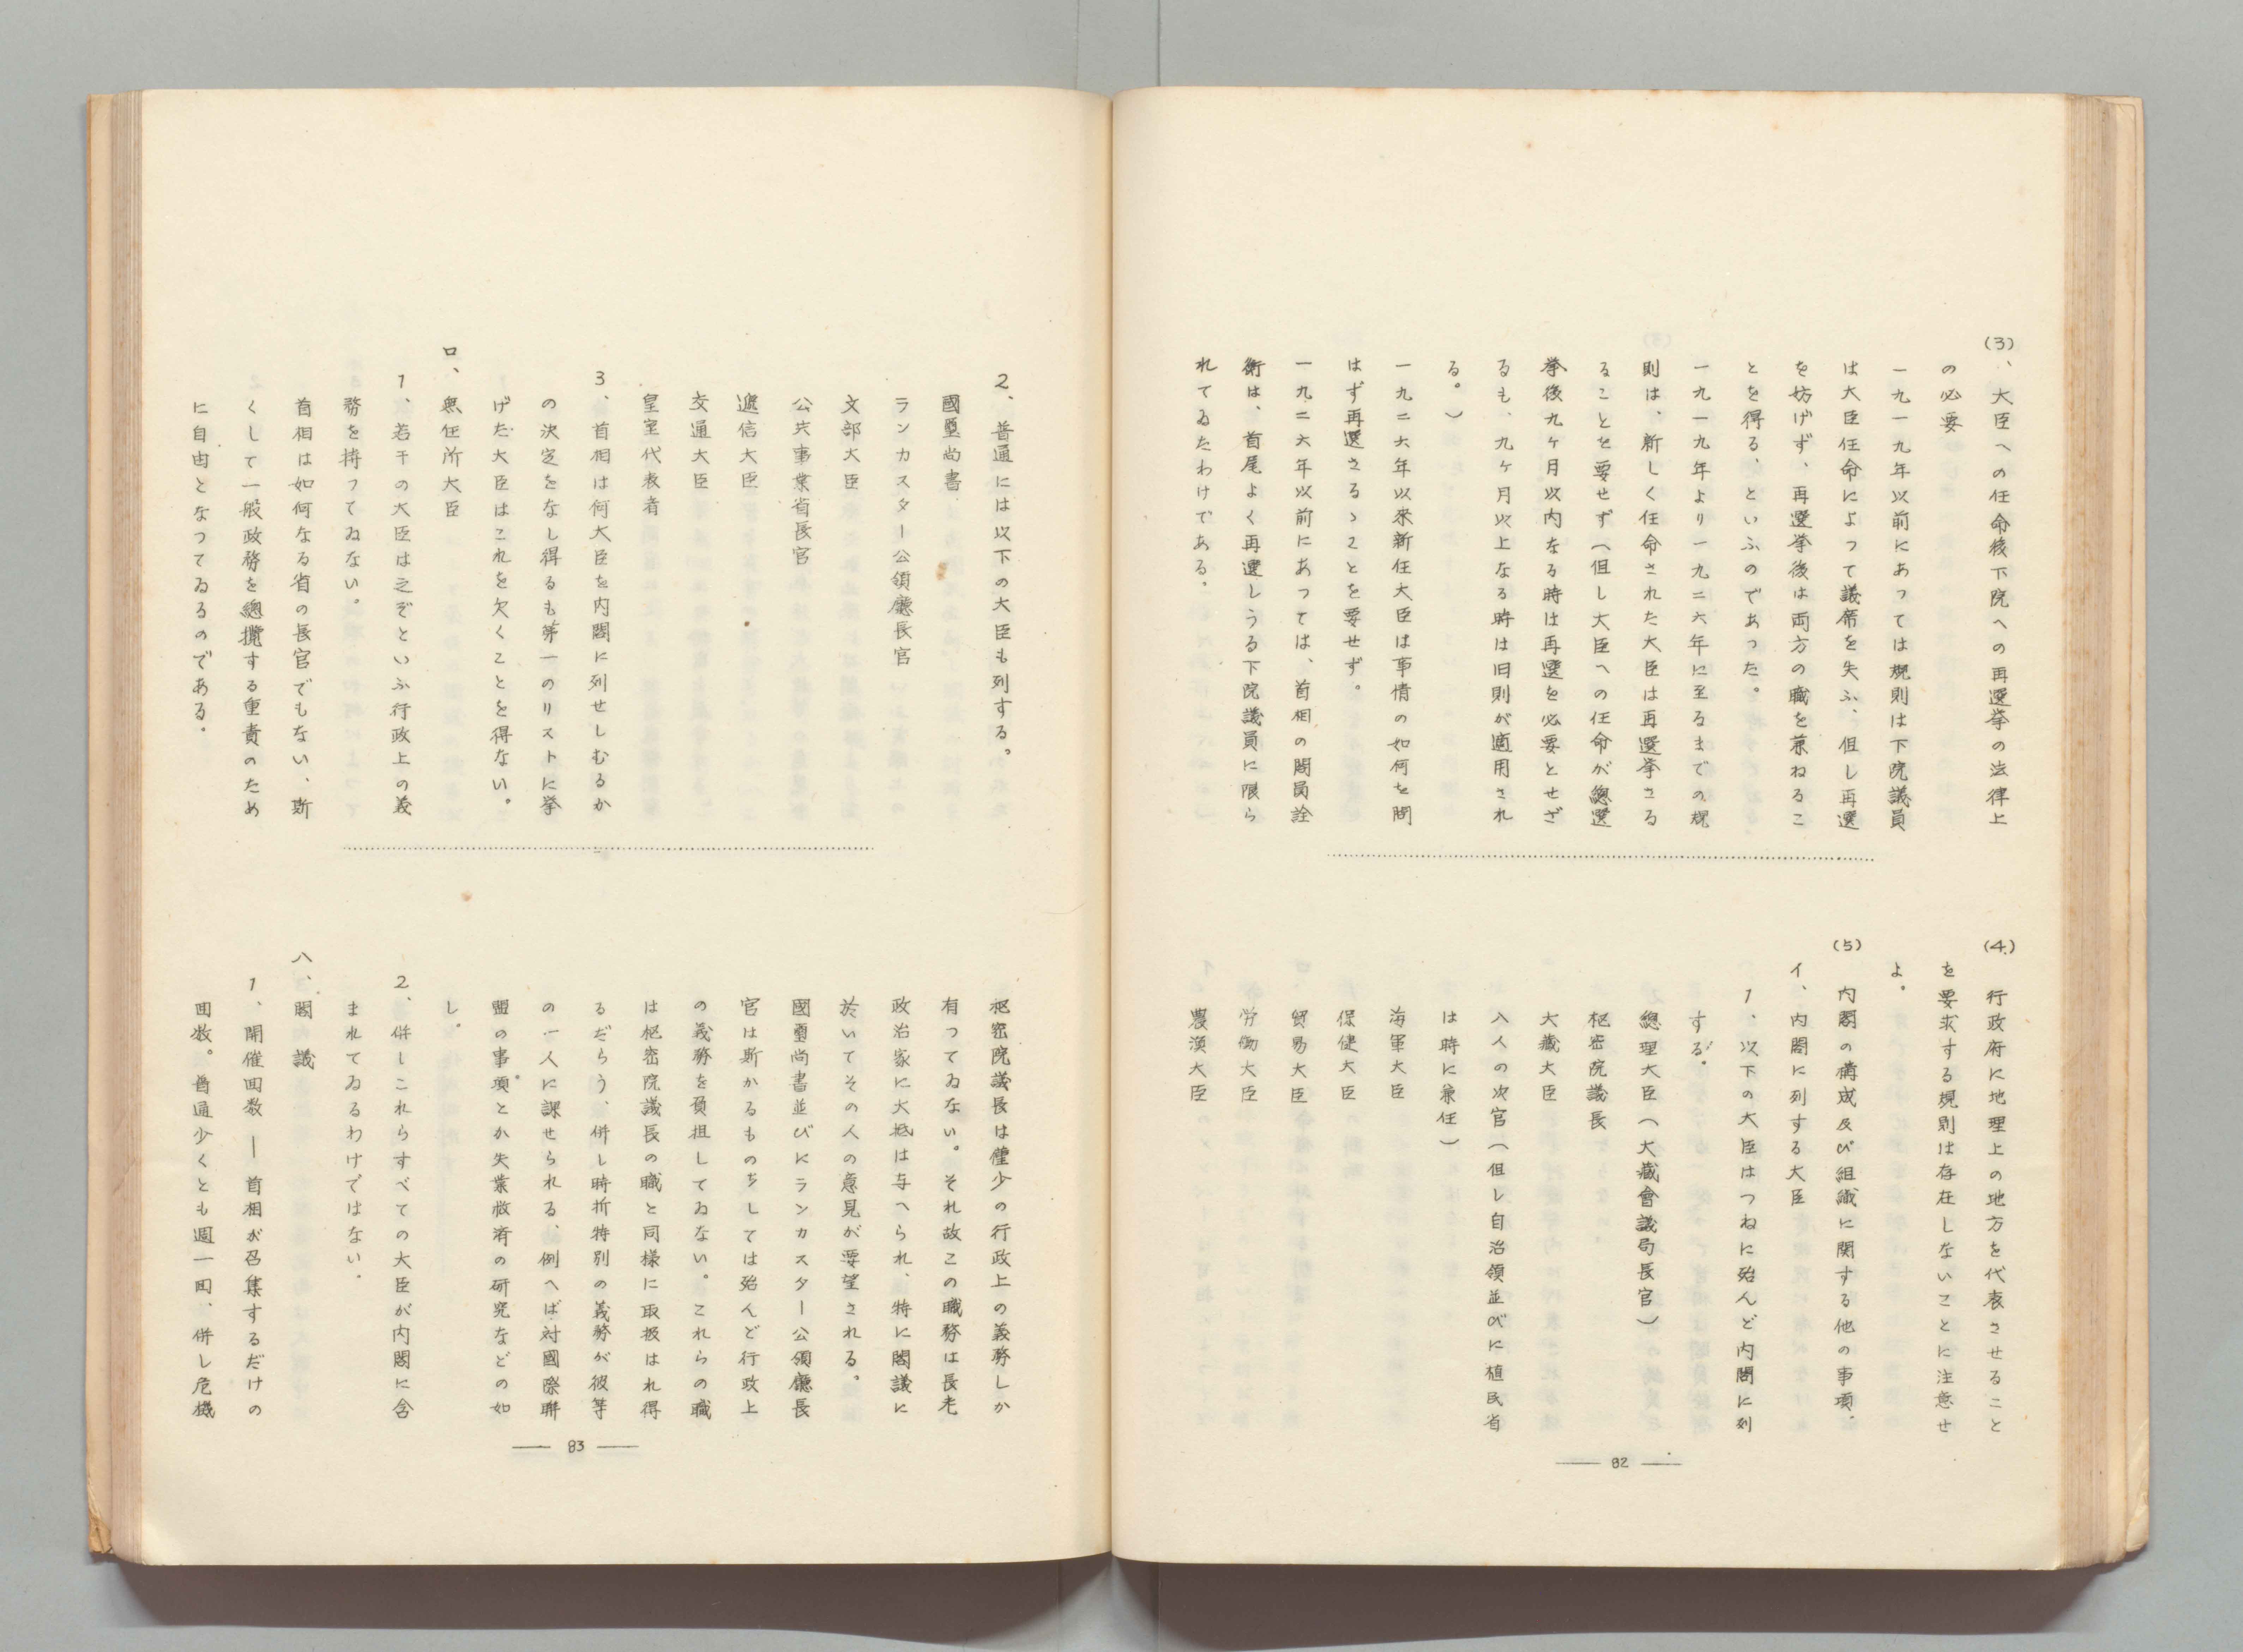 (3)、大臣への任命後下院への再選挙の法律上
の必要
一九一九年以前にあつては規則は下院議員
は大臣任命によつて議席を失ふ、但し再選
を妨げず、再選挙後は両方の職を兼ねるこ
とを得る、といふのであつた。
一九一九年より一九二六年に至るまでの規
則は、新しく任命された大臣は再選挙さる
ることを要せず（但し大臣への任命が總選
挙後九ケ月以内なる時は再選を必要とせざ
るも、九ケ月以上なる時は旧則が適用され
る。）
一九二六年以來新任大臣は事情の如何を問
はず再選さるゝことを要せず。
一九二六年以前にあつては、首相の閣員詮
衡は、首尾よく再選しうる下院議員に限ら
れてゐたわけである。
(4)行政府に地理上の地方を代表させること
を要求する規則は存在しないことに注意せ
よ。
(5)内閣の構成及び組織に関する他の事項.
イ、内閣に列する大臣
1、以下の大臣はつねに殆んど内閣に列
する。
總理大臣（大藏會議局長官）
枢密院議長
大藏大臣
八人の次官（但し自治領並びに植民省
は時に兼任）
海軍大臣
保健大臣
貿易大臣
労働大臣
農漁大臣
82
2、普通には以下の大臣も列する。
國璽尚書
ランカスター公領廳長官
文部大臣
公共事業省長官
遞信大臣
交通大臣
皇室代表者
3、首相は何大臣を内閣に列せしむるか
の決定をなし得るも第一のリストに挙
げた大臣はこれを欠くことを得ない。
ロ、無任所大臣
1、若干の大臣は之ぞといふ行政上の義
務を持つてゐない。
首相は如何なる省の長官でもない、斯
くして一般政務を總攬する重責のため
に自由となつてゐるのである.
枢密院議長は僅少の行政上の義務しか
有つてゐない。それ故この職務は長老
政治家に大抵は与へられ、特に閣議に
於いてその人の意見が要望される。
國璽尚書並びにランカスター公領廳長
官は斯かるものちしては殆んど行政上
の義務を負担してゐない。これらの職
は枢密院議長の職と同様に取扱はれ得
るだらう、併し時折特別の義務が彼等
の一人に課せられる、例へば対國際聯
盟の事項とか失業救済の研究などの如
し。
2、併しこれらすべての大臣が内閣に含
まれてゐるわけではない.
ハ、閣議
1、開催回数 — 首相が召集するだけの
回数。普通少くとも週一回、併し危機
83